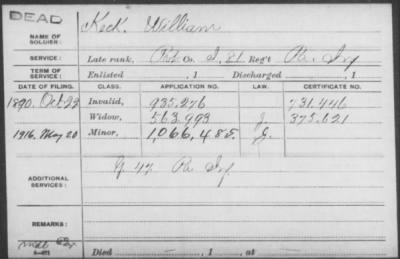 DEAD
NAME OF SOLDIER: Keck, William
SERVICE: Late rank, Pvt Co. I, 81 Reg't Pa. Inf
TERM OF SERVICE: Enlisted , 1 Discharged , 1
DATE OF FILING. CLASS. APPLICATION NO. LAW. CERTIFICATE NO.
1890. Oct 23 Invalid, 935.276 731.446
Widow, 563.993 J. 375.621
1916. May 20 Minor, 1,066,485. G.
ADDITIONAL SERVICES: G 47 Pa Inf.
REMARKS:
Died , 1 , at